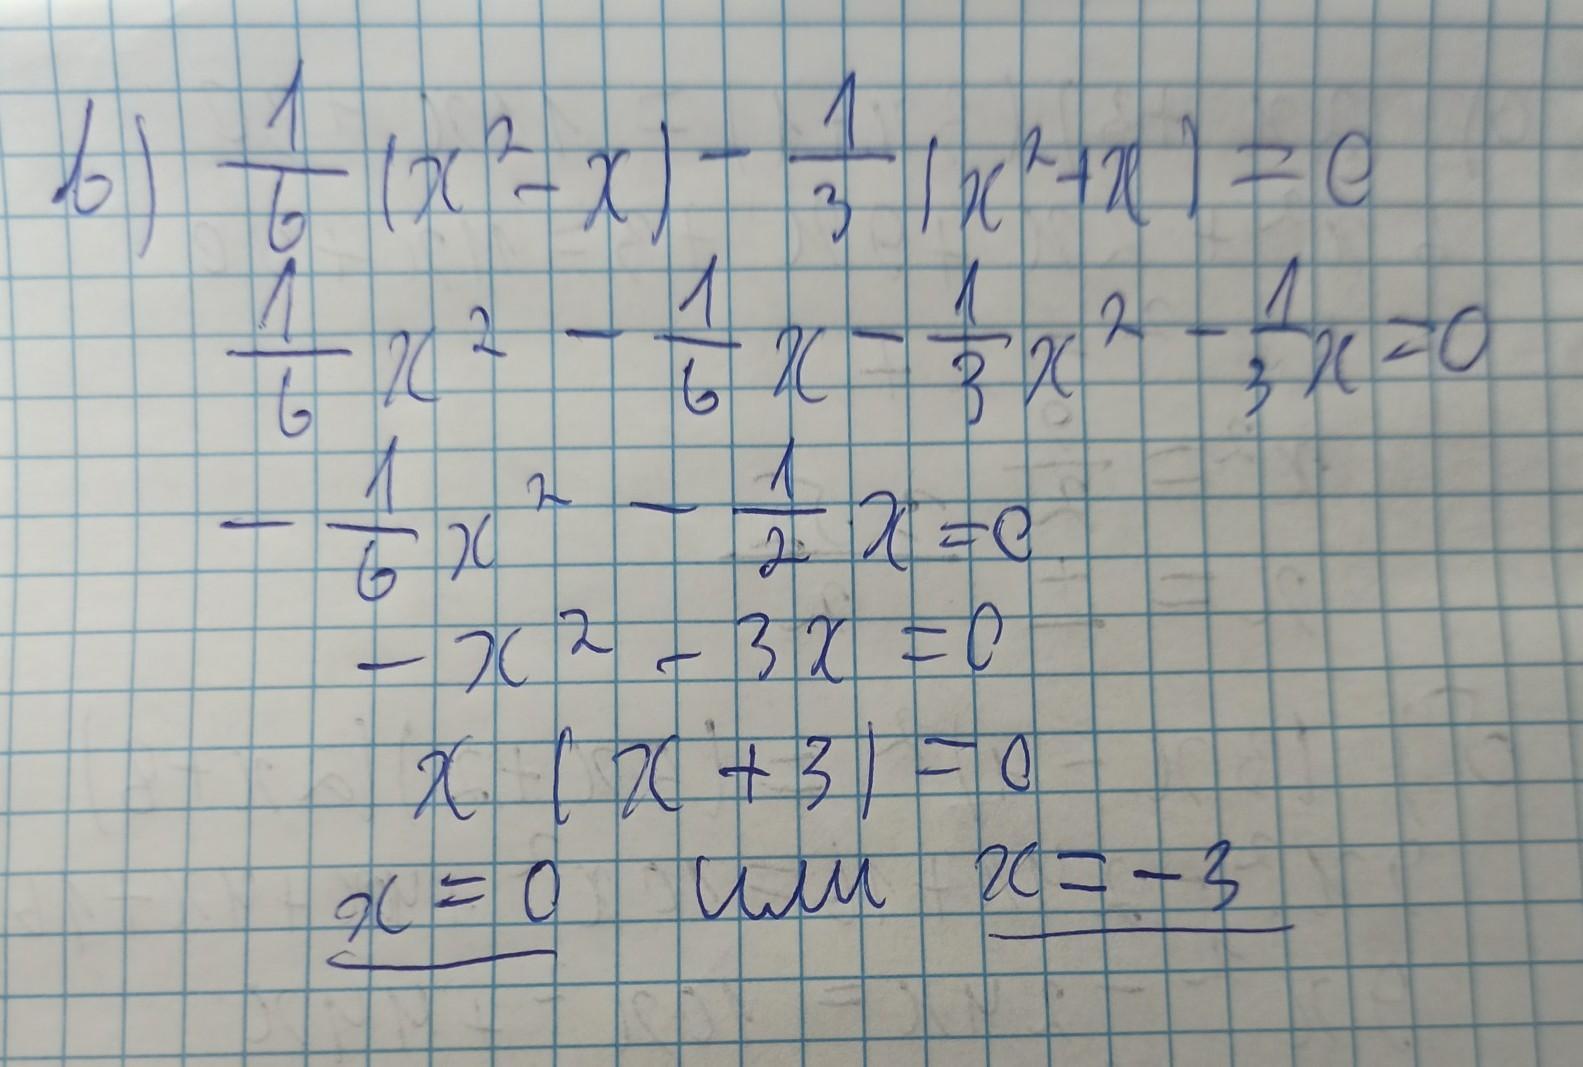 в) 1/6 (x² - x) - 1/3 (x² + x) = 0
1/6 x² - 1/6 x - 1/3 x² - 1/3 x = 0
- 1/6 x² - 1/2 x = 0
- x² - 3x = 0
x (x + 3) = 0
x = 0 или x = -3